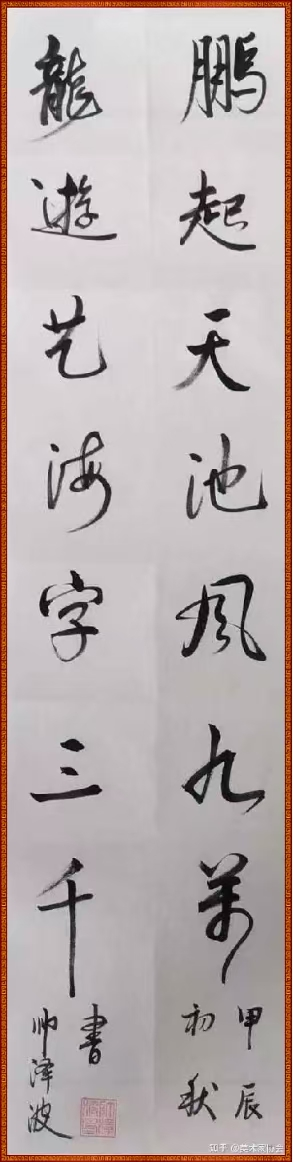 鹏起天池风九万
甲辰
初秋
龍遊艺海字三千
書
帅泽波
知乎 @美术家协会